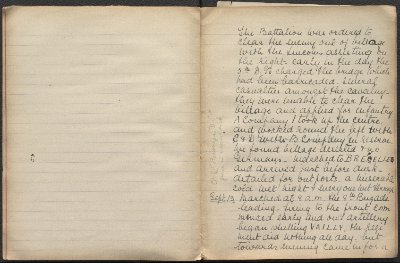 The Battalion was ordered to
clear the enemy out of village
with the Lincolns assisting on
the right. Early in the day the
5th D. Gs charged the bridge which
had been barricaded. Several
casualties amongst the cavalry
they were unable to clear the
village and applied for infantry
A Company took up the centre
and worked round the left with
C & D with B Company in reserve
we found village deserted & no
Germans. Marched to BRENELLE
and arrived just before dark
detailed for outposts, a miserable
cold wet night & everyone wet through
Sept 13 Marched at 8 a.m. the 8th Brigade
leading. Firing to the front com
menced early and our artillery
began shelling VAILLY. The Regi
ment did nothing all day. but
towards evening came in for a